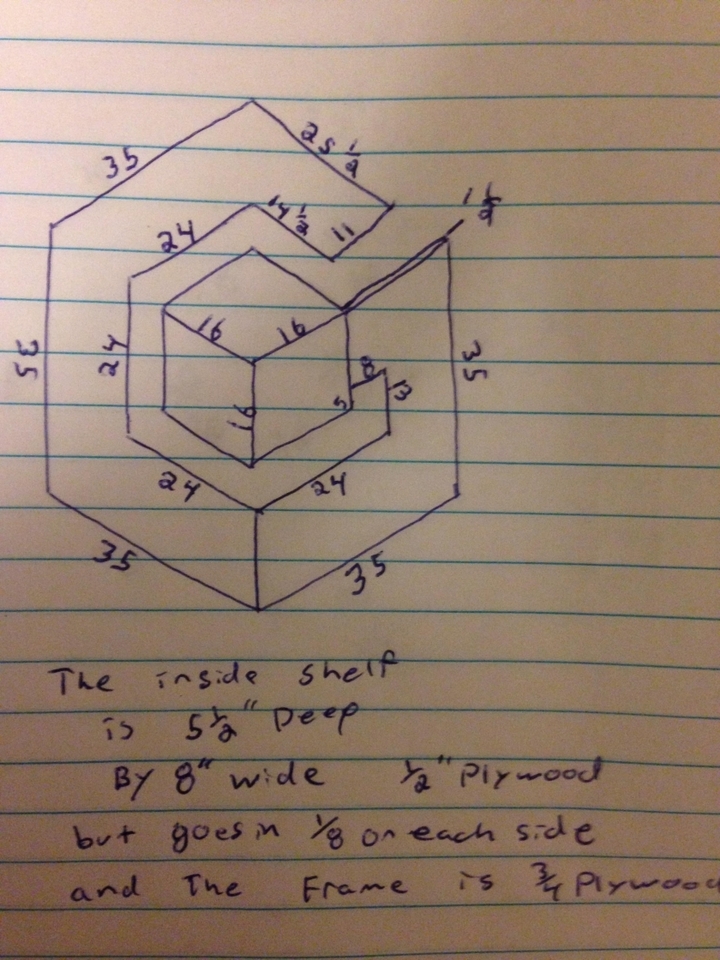 25 1/2
35
1 1/2
14 1/2
11
24
16
16
35
24
35
8
13
5
16
24
24
35
35
The inside shelf
is 5 1/2" Deep
By 8" wide 1/2" Plywood
but goes in 1/8 on each side
and The Frame is 3/4 Plywood